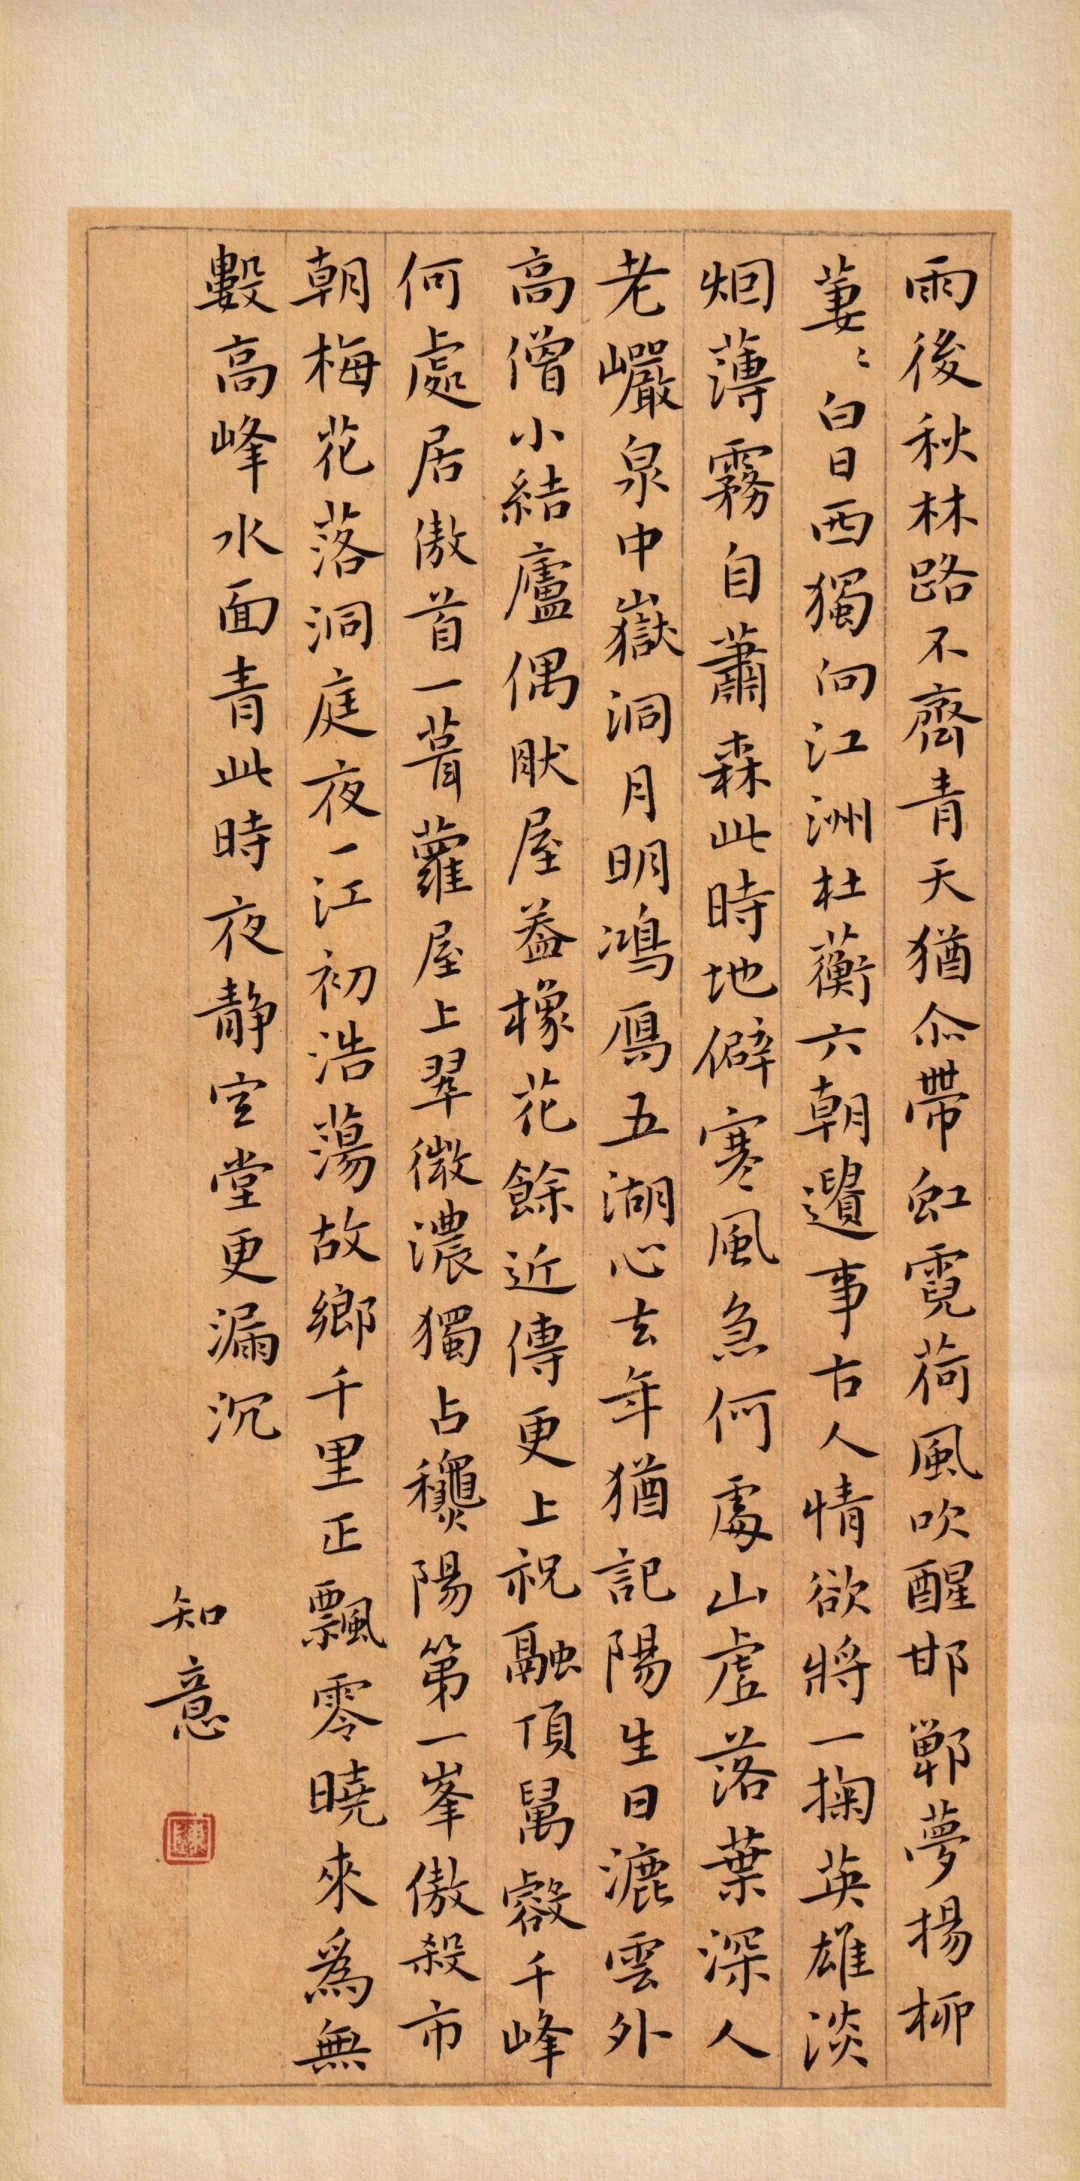 雨後秋林路不齊青天猶尒帶虹霓荷風吹醒邯鄲夢揚柳
萋〻白日西獨向江洲杜蘅六朝遺事古人情欲將一掬英雄淡
烟薄霧自蕭森此時地僻寒風急何處山虛落葉深人
老巖泉中嶽洞月明鴻鴈五湖心去年猶記陽生日漉雲外
高僧小結廬偶肰屋益橡花餘近傳更上祝融頂萬壑千峰
何處居傲首一葺蘿屋上翠微濃獨占龝陽第一峯傲殺市
朝梅花落洞庭夜一江初浩蕩故鄉千里正飄零曉來為無
數高峰水面青此時夜靜空堂更漏沉
知意